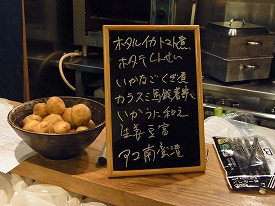 ホタルイカトマト煮
ホタテしんせい
いかなごくぎ煮
カラスミ馬鈴薯
いかうに和え
生毎豆富
タコ南蛮漬